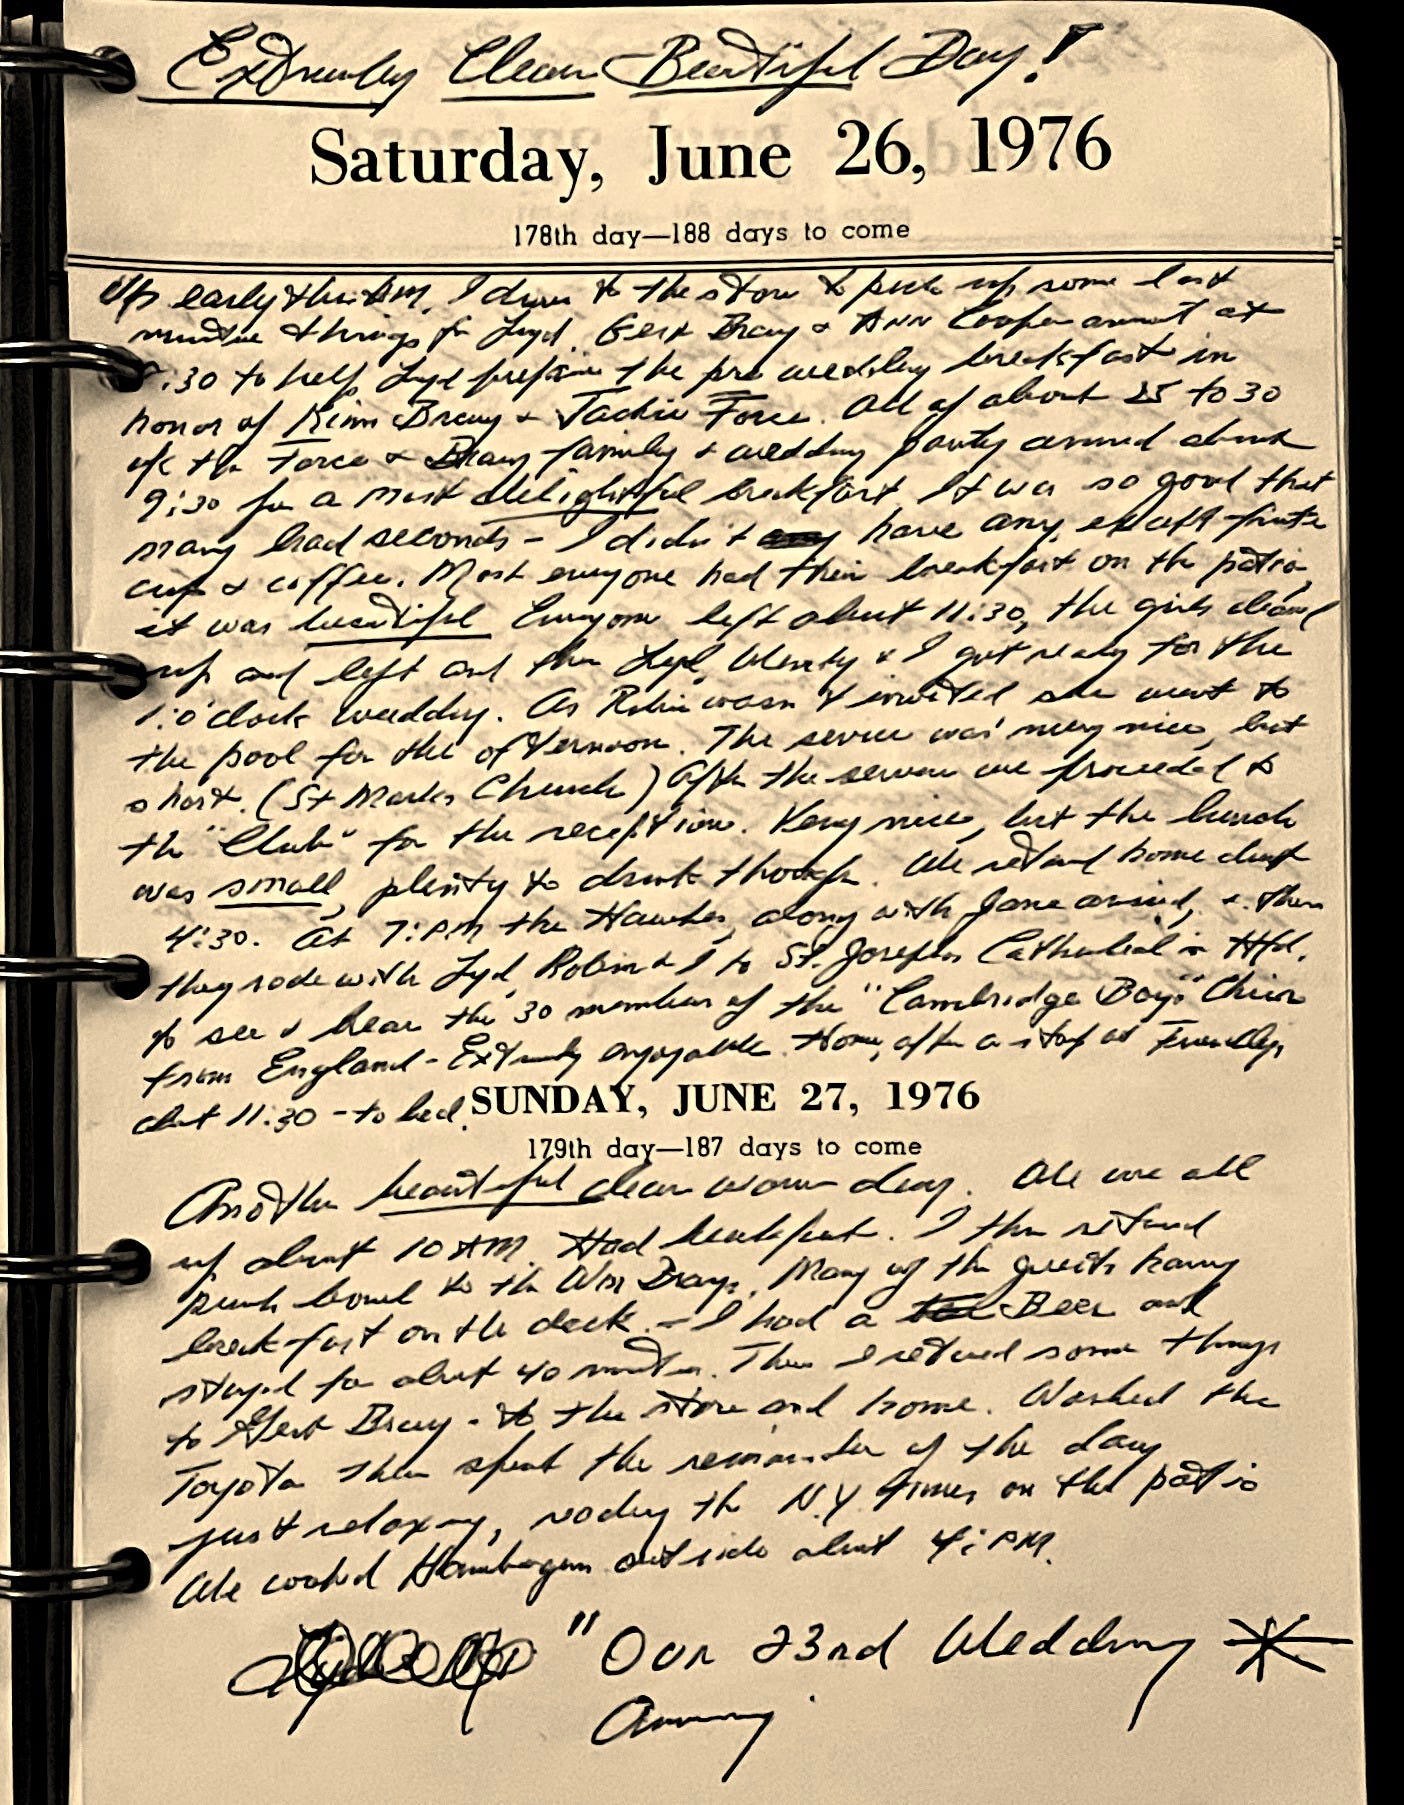 Extremely Clear Beautiful Day!
Saturday, June 26, 1976
178th day—188 days to come
Up early this AM. I drove to the store to pick up some last
minute things for Lyd. Gert Bray & Ann Cooper arrived at
:30 to help Lyd prepare the pre wedding breakfast in
honor of Kim Bray & Jackie Force. All of about 25 to 30
of the Force & Bray family & wedding party arrived about
9:30 for a most delightful breakfast. It was so good that
many had seconds - I didn't have any, except fruit
cup & coffee. Most everyone had their breakfast on the patio,
it was beautiful. Everyone left about 11:30, the girls cleaned
up and left and then Lyd, Wendy & I got ready for the
1:o'clock wedding. As Robin wasn't invited she went to
the pool for the afternoon. The service was very nice, but
short. (St Marks Church) After the service we proceeded to
the "Club" for the reception. Very nice, but the lunch
was small, plenty to drink though. We returned home about
4:30. At 7:PM the Hawkes, along with Jane arrived, & then
they rode with Lyd, Robin & I to St. Josephs Cathedral in Htfd.
to see & hear the 30 members of the "Cambridge Boys" Choir
from England - Extremely enjoyable. Home, after a stop at Friendlys
about 11:30 - to bed.
SUNDAY, JUNE 27, 1976
179th day—187 days to come
Another beautiful clear warm day. We were all
up about 10 AM. Had breakfast. I then returned
punch bowl to the Wm Brays. Many of the guests having
breakfast on the deck - I had a Beer and
stayed for about 40 minutes. Then I returned some things
to Gert Bray - to the store and home. Washed the
Toyota then spent the remainder of the day
just relaxing, reading the N.Y. Times on the patio
We cooked Hamburgers outside about 4:PM.
"Our 23rd Wedding